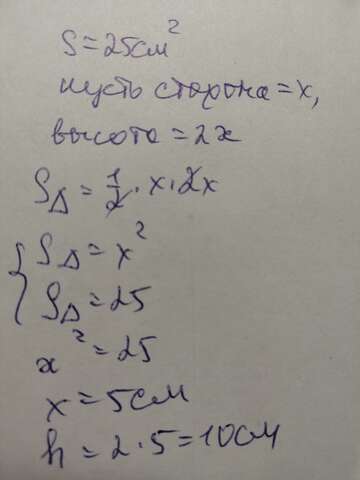 S = 25см²
пусть сторона = x,
высота = 2x
S△ = 1/2 · x · 2x
{ S△ = x²
S△ = 25
x² = 25
x = 5см
h = 2 · 5 = 10см